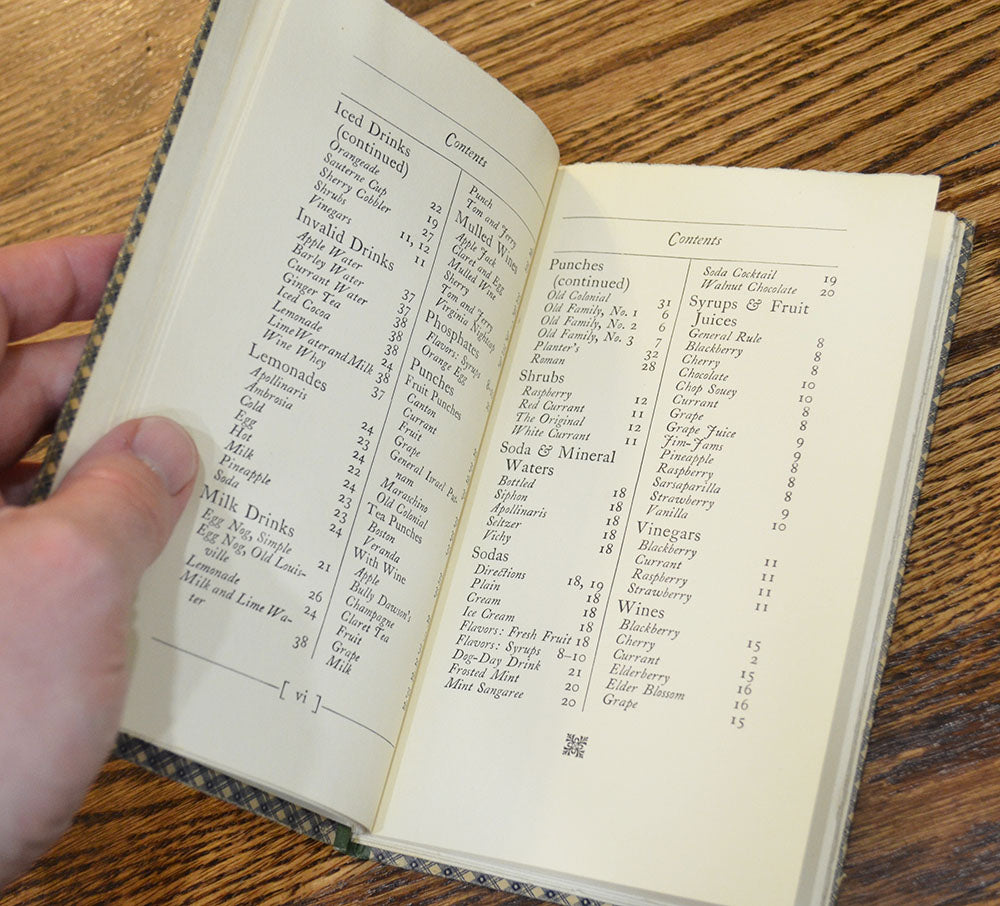 Contents
Iced Drinks
(continued)
Orangeade 22
Sauterne Cup 19
Sherry Cobbler 27
Shrubs 11, 12
Vinegars 11
Invalid Drinks
Apple Water 37
Barley Water 37
Currant Water 38
Ginger Tea 38
Iced Cocoa 38
Lemonade 24
Lime Water and Milk 38
Wine Whey 37
Lemonades
Apollinaris 24
Ambrosia 23
Cold 24
Egg 22
Hot 24
Milk 23
Pineapple 23
Soda 24
Milk Drinks
Egg Nog, Simple 21
Egg Nog, Old Louis-
ville 26
Lemonade 24
Milk and Lime Wa-
ter 38
Punch
Tom and Jerry
Mulled Wines
Apple Jack
Claret and Egg
Mulled Wine
Sherry
Tom and Jerry
Virginia
Phosphates
Flavors: Syrups
Orange Egg
Punches
Fruit Punches
Canton
Currant
Fruit
Grape
General Israel Put-
nam
Maraschino
Old Colonial
Tea Punches
Boston
Veranda
With Wine
Apple
Bully Dawson's
Champagne
Claret Tea
Fruit
Grape
Milk
[ vi ]
Contents
Punches
(continued)
Old Colonial 31
Old Family, No. 1 6
Old Family, No. 2 6
Old Family, No. 3 7
Planter's 32
Roman 28
Shrubs
Raspberry 12
Red Currant 11
The Original 12
White Currant 11
Soda & Mineral
Waters
Bottled 18
Siphon 18
Apollinaris 18
Seltzer 18
Vichy 18
Sodas
Directions 18, 19
Plain 18
Cream 18
Ice Cream 18
Flavors: Fresh Fruit 18
Flavors: Syrups 8–10
Dog-Day Drink 21
Frosted Mint 20
Mint Sangaree 20
Soda Cocktail 19
Walnut Chocolate 20
Syrups & Fruit
Juices
General Rule 8
Blackberry 8
Cherry 8
Chocolate 10
Chop Souey 10
Currant 8
Grape 8
Grape Juice 9
Jim-Jams 9
Pineapple 8
Raspberry 8
Sarsaparilla 8
Strawberry 9
Vanilla 10
Vinegars
Blackberry 11
Currant 11
Raspberry 11
Strawberry 11
Wines
Blackberry 15
Cherry 2
Currant 15
Elderberry 16
Elder Blossom 16
Grape 15